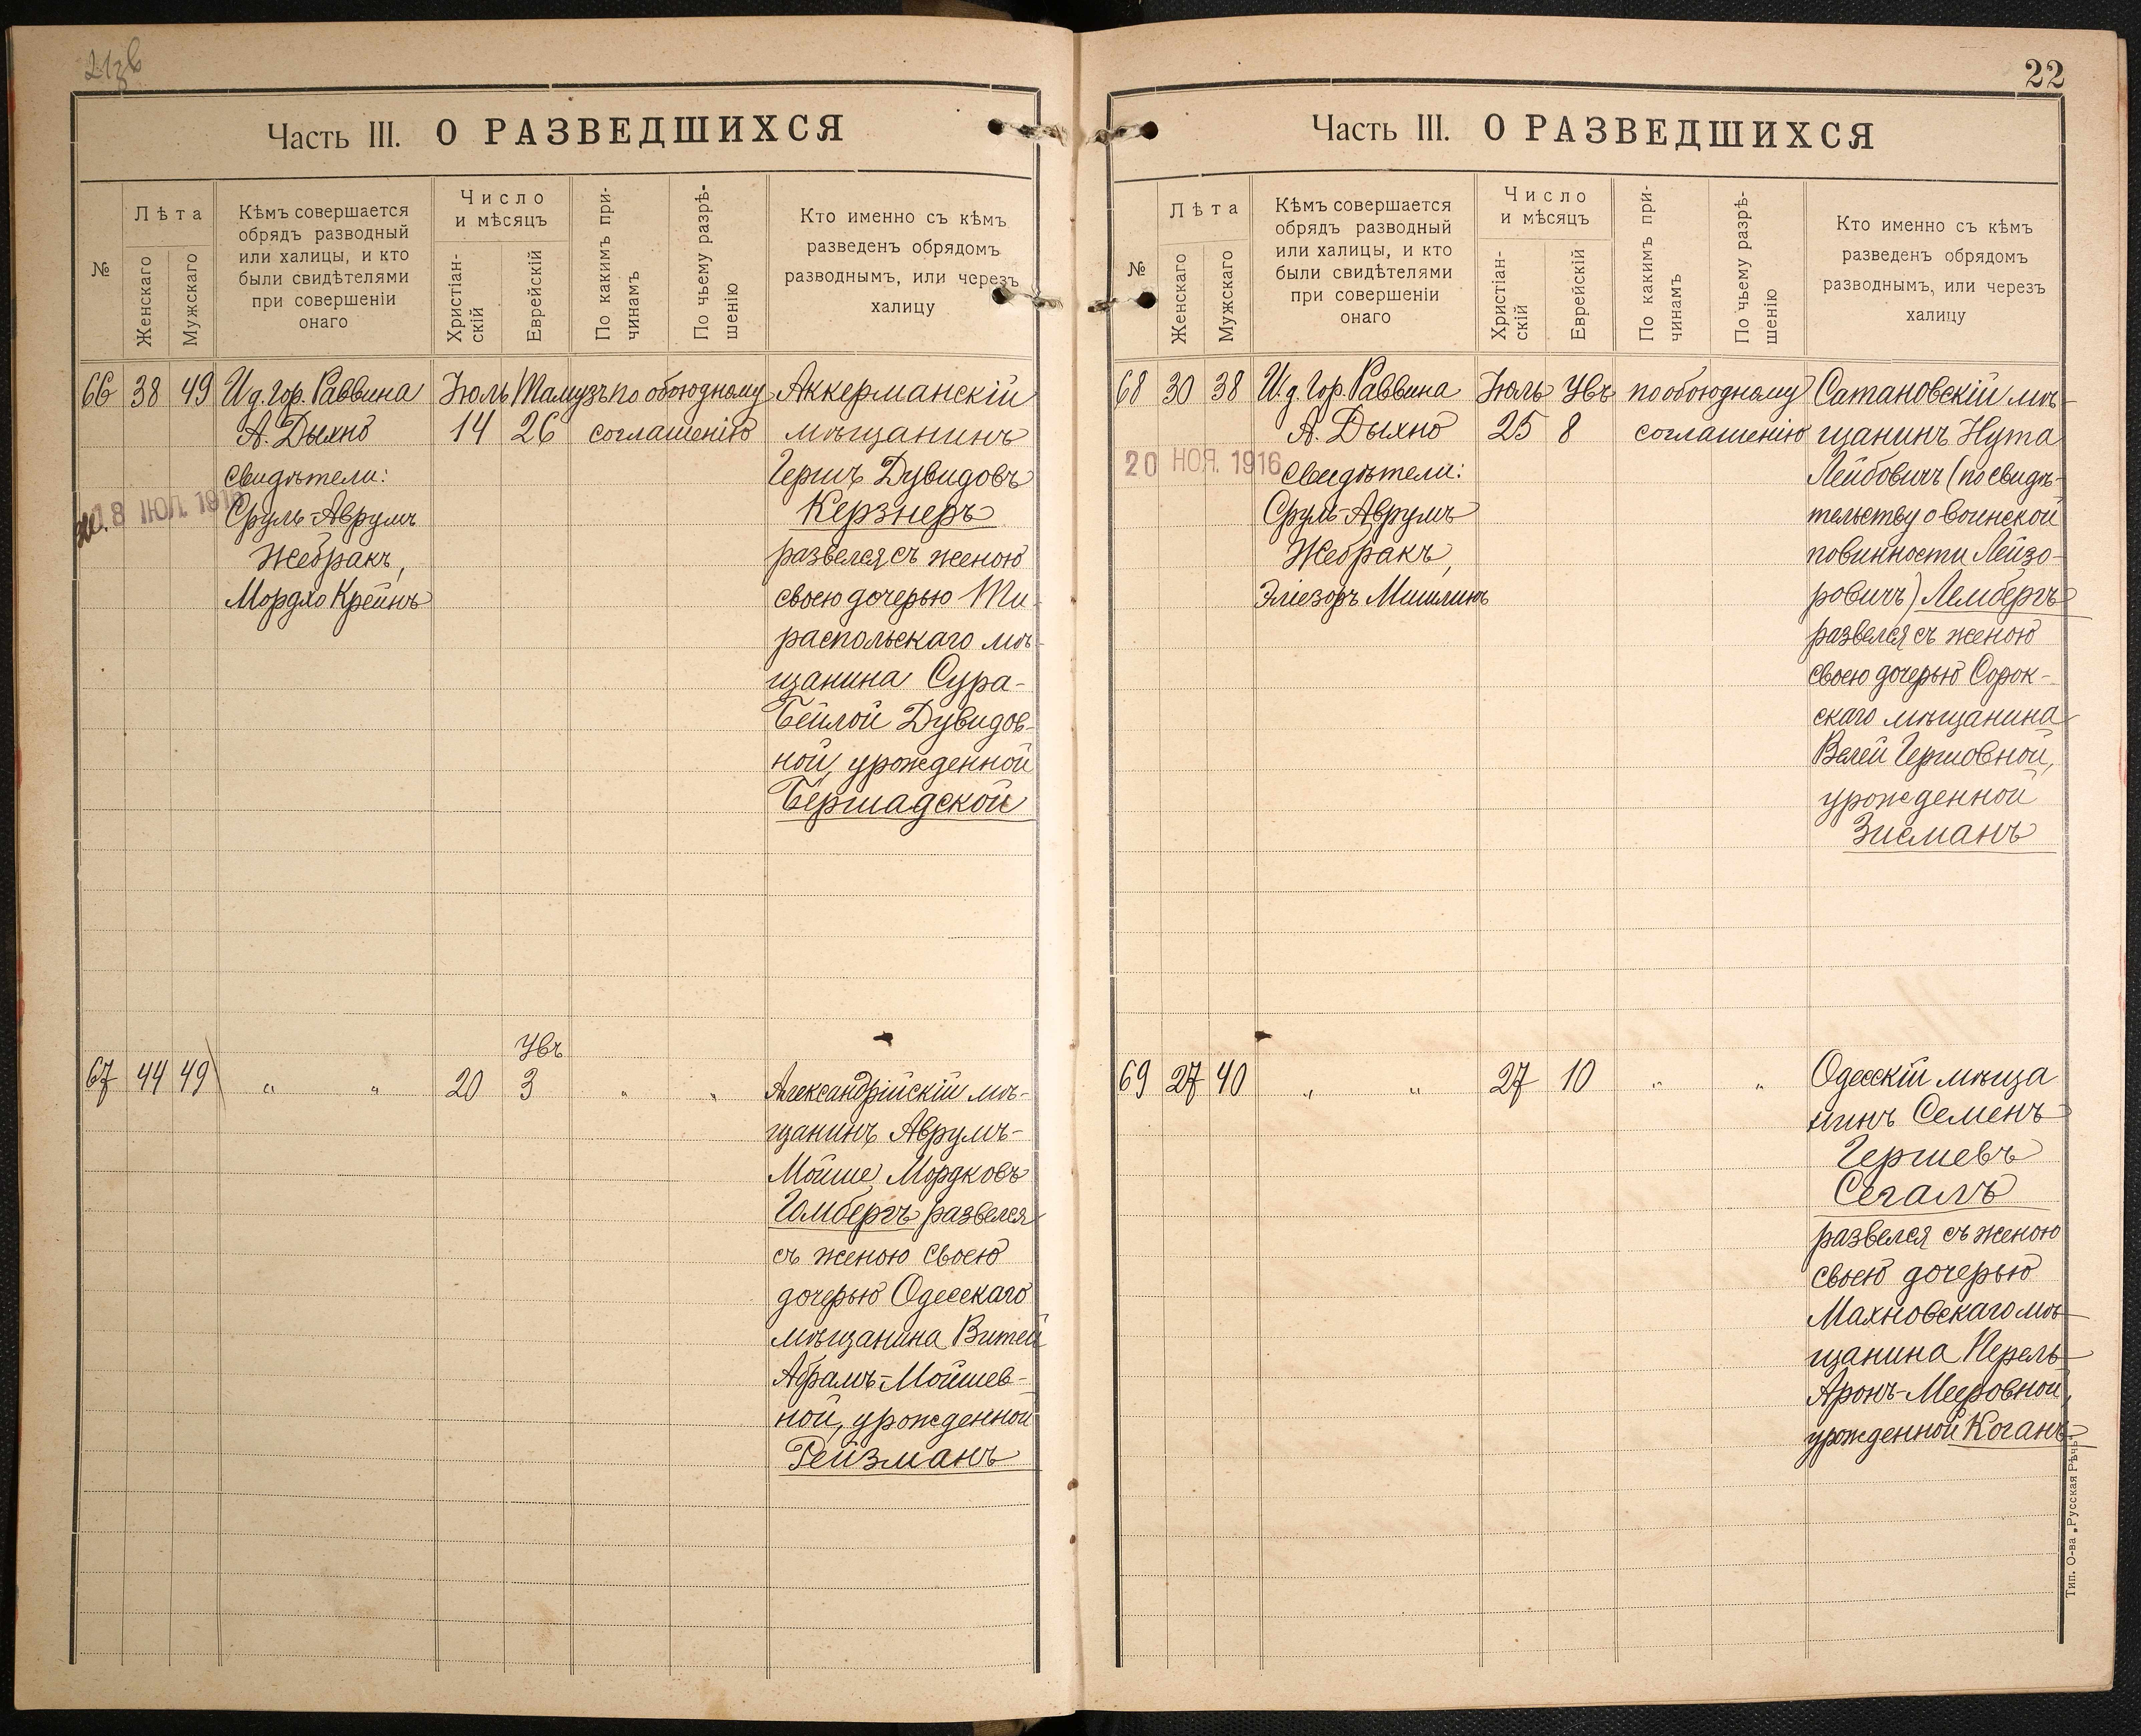 Часть III. О РАЗВЕДШИХСЯ
№
Лѣта
Женскаго
Мужскаго
Кѣмъ совершается
обрядъ разводный
или халицы, и кто
были свидѣтелями
при совершеніи
онаго
Число
и мѣсяцъ
Христіан-
скій
Еврейскій
По какимъ при-
чинамъ
По чьему разрѣ-
шенію
Кто именно съ кѣмъ
разведенъ обрядомъ
разводнымъ, или черезъ
халицу
66 38 49 И. д. Гор. Раввина Іюль Тамузъ по обоюдному Аккерманскій
А. Дыхно 14 26 соглашенію мѣщанинъ
Свидѣтели: Гершъ Дувидовъ
8 ІЮЛ. 191
Сруль-Аврумъ Керзнеръ
Жебракъ, развелся съ женою
Мордко Крейнъ своею дочерью Ти-
распольскаго мѣ-
щанина Сура-
Бейлой Дувидов-
ной, урожденной
Бершадской
Увъ
67 44 49 " " 20 3 " " Александрійскій мѣ-
щанинъ Аврумъ-
Мойше Мордковъ
Гомбергъ развелся
съ женою своею
дочерью Одесскаго
мѣщанина Витей
Абрамъ-Мойшев-
ной, урожденной
Рейзманъ
22
Часть III. О РАЗВЕДШИХСЯ
№
Лѣта
Женскаго
Мужскаго
Кѣмъ совершается
обрядъ разводный
или халицы, и кто
были свидѣтелями
при совершеніи
онаго
Число
и мѣсяцъ
Христіан-
скій
Еврейскій
По какимъ при-
чинамъ
По чьему разрѣ-
шенію
Кто именно съ кѣмъ
разведенъ обрядомъ
разводнымъ, или черезъ
халицу
68 30 38 И. д. Гор. Раввина Іюль Увъ по обоюдному Сатановскій мѣ-
А. Дыхно 25 8 соглашенію щанинъ Нута
20 НОЯ. 1916
Свидѣтели: Лейбовичъ (по свидѣ-
Сруль-Аврумъ тельству о воинской
Жебракъ, повинности Лейзо-
Эліезоръ Мишлинъ ровичъ) Лембергъ
развелся съ женою
своею дочерью Сорок-
скаго мѣщанина
Велей Гершовной,
урожденной
Зисманъ
69 27 40 " " 27 10 " " Одесскій мѣща
нинъ Семенъ
Гершевъ
Сегалъ
развелся съ женою
своею дочерью
Махновскаго мѣ-
щанина Перель
Аронъ-Мееровной,
урожденной Коганъ
Тип. О-ва „Русская Рѣчь"